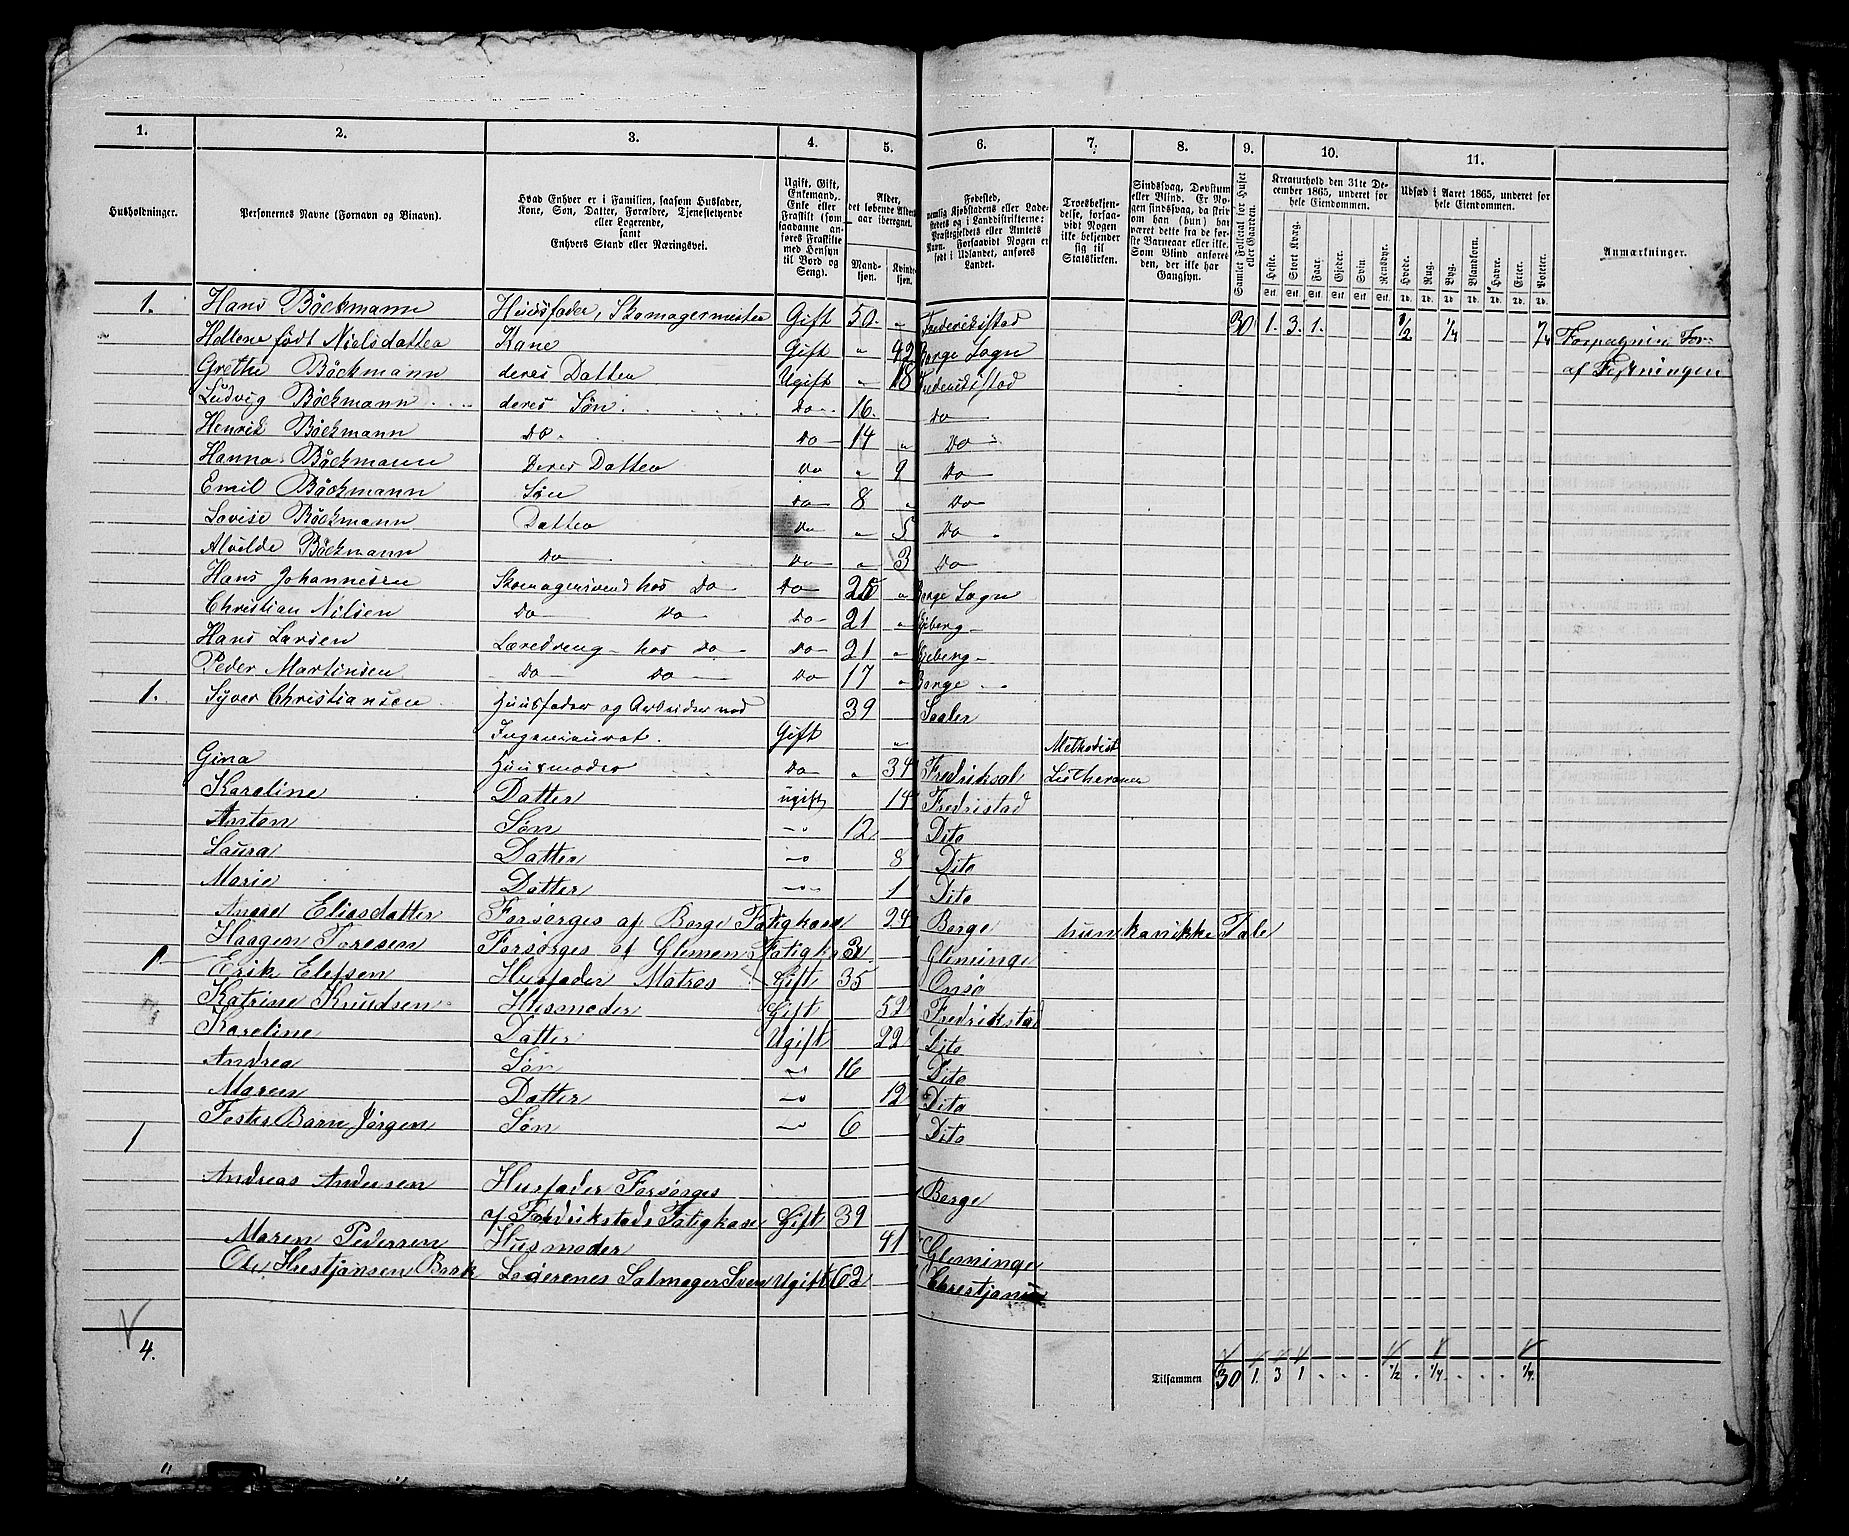 1. 2. 3. 4. 5. 6. 7. 8. 9. 10. 11.
Husholdninger. Personernes Navne (Fornavn og Binavn). Hvad Enhver er i Familien, saasom Husfader, Kone, Søn, Datter, Forældre, Tjenestetyende eller Logerende, samt Enhvers Stand eller Næringsvei. Ugift, Gift, Enkemand, Enke eller Fraskilt (som saadanne anføres Fraskilte med Hensyn til Bord og Seng). Alder, det løbende Alders aar iberegnet. Mandkjøn. Kvindekjøn. Fødested, nemlig Kjøbstadens eller Ladestedets og i Landdistrikterne: Præstegjeldets eller Amtets Navn. Forsaavidt Nogen er født i Udlandet, anføres Landet. Troesbekjendelse, forsaavidt Nogen ikke bekjender sig til Statskirken. Sindssvag, Døvstum eller Blind. Er Nogen sindssvag, da skriv om han (hun) har været dette fra de første Barneaar eller ikke. Som Blind anføres den, der ikke har Gangsyn. Samlet Folketal for Huset eller Gaarden. Kreaturhold den 31te December 1865, underet for hele Eiendommen. Udsæd i Aaret 1865, underet for hele Eiendommen. Anmærkninger.
Heste. Stort Kvæg. Faar. Gjeder. Svin. Rensdyr. Hvede. Rug. Byg. Blandkorn. Havre. Erter. Poteter.
1. Hans Böckmann Huusfader, Skomagermester Gift 50. " Frederikstad 30 1. 3. 1. 1/2 1/4
Hellene født Nielsdatter Kone Gift " 42 Borge Sogn
Grethe Böckmann deres Datter Ugift " 18 Frederikstad af Festningen
Ludvig Böckmann deres Søn Do 16. Do
Henrik Böckmann Do. Do 14 " Do
Hanna Böckmann Deres Datter Do " 9 Do
Emil Böckmann Søn Do 8 " Do
Lovise Böckmann Datter Do " 5 Do
Alvilde Böckmann Do Do " 3 Do
Hans Johannesen Skomagersvend hos Do Do 25 " Borge Sogn
Christian Nilsen Do Do Do 21 "
Hans Larsen Læredreng hos Do Do 21 "
Peder Martinsen Do Do Do 17 " Borge
1. Syver Christiansen Huusfader og Arbeider ved 39 Saaler
Ingenieurat. Gift " Methodist
Gina Huusmoder Do " 34 Fredrikshal Lutheraner
Karoline Datter ugift 14 Fredristad
Anton Søn " 12 Dito
Laura Datter " 8 Dito
Marie Datter " 1 Dito
Anese Eliasdatter Forsørges af Borge Fatigkasse 24 Borge hun kan ikke Tale
Haagen Toresen Forsørges af Glemen Fatigk Gleminge
1 Erik Elefsen Husfader Matros Gift 35 Onsø
Katrine Knudsen Husmoder Gift 52 Fredrikstad
Karoline Datter Ugift 22 Dito
Andrea Søn " 16 Dito
Maren Datter " 12 Dito
Foster Barn Jørgen Søn " 6 Dito
1
Andreas Andersen Husfader Forsørges Borge
af Fredrikstads Fatigkasse Gift 39
Maren Pedersen Husmoder 41 Gleminge
Ole Hrestjansen Bark Loderenes Salmager Sven Ugift 62
4. Tilsammen 30 1. 3 1 1/2 1/4 1/4